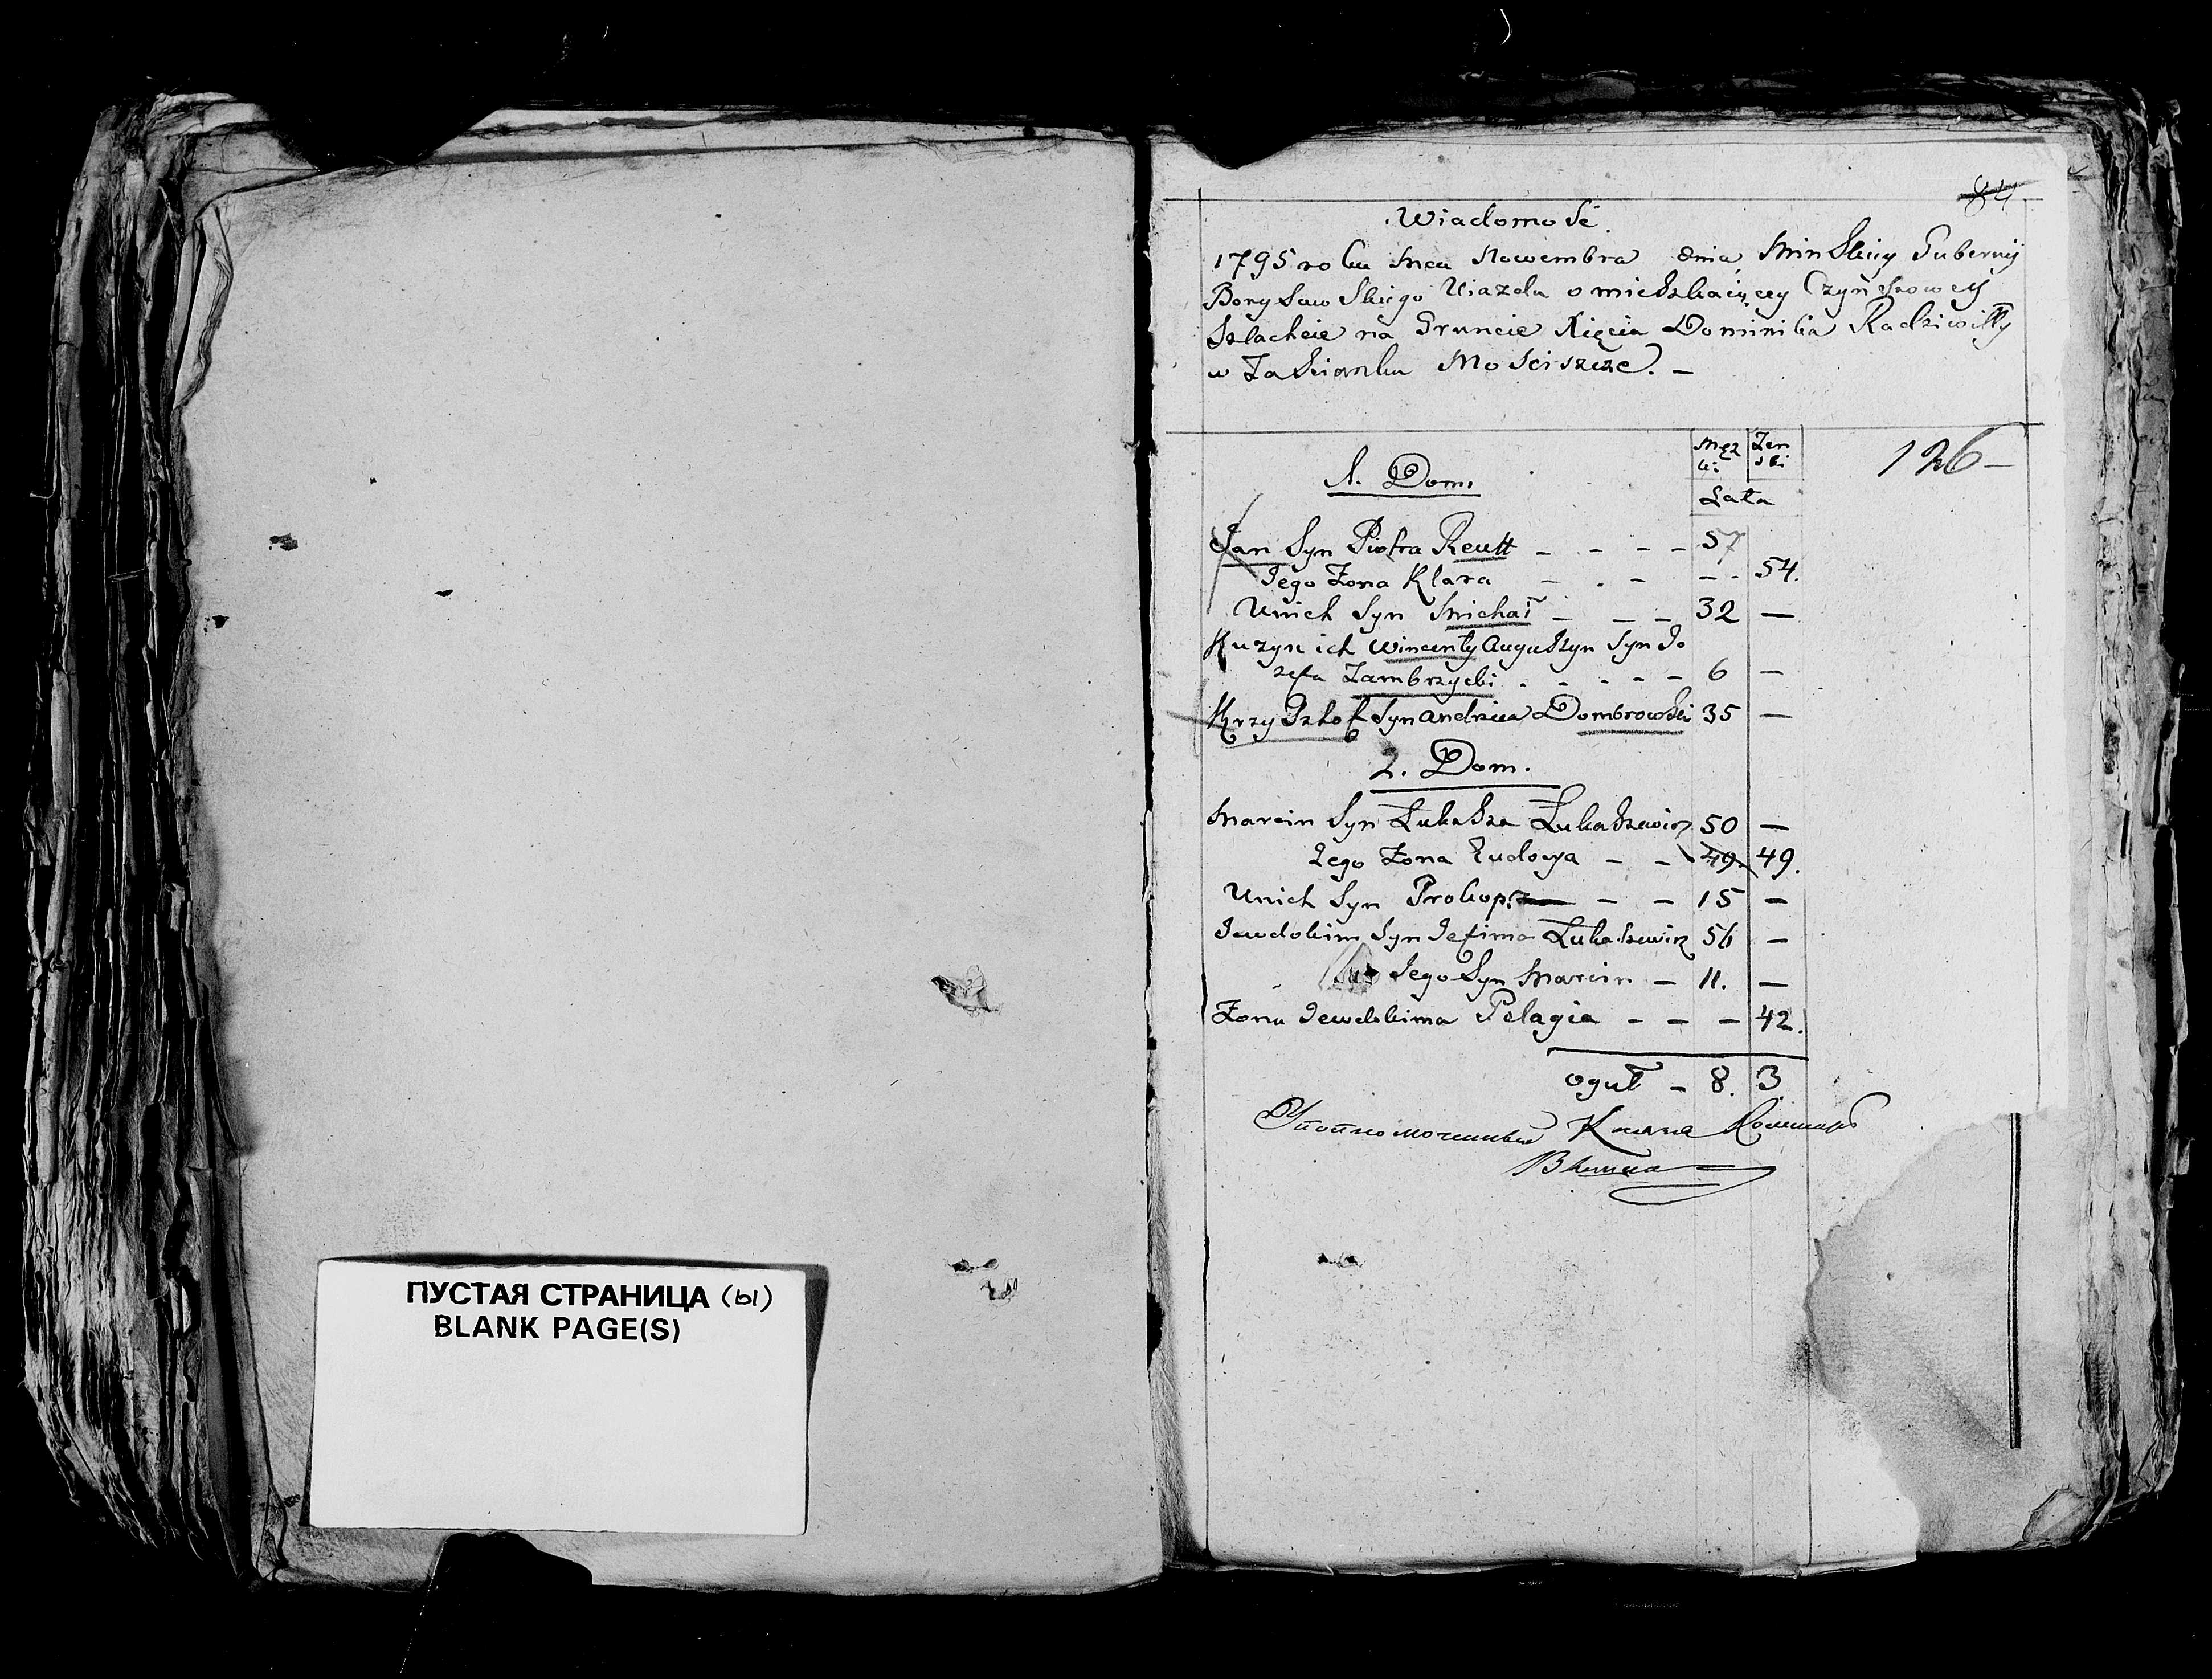 ПУСТАЯ СТРАНИЦА (ы)
BLANK PAGE(S)
84
Wiadomość.
1795 roku Mca Nowembra dnia, Minskiey Gubernij
Borysowskiego Ujazdu o mieszkaiącey Czynszowey
Szlachcie na Gruncie Xięcia Dominika Radziwiłły
w Zaścianku Mościszcze. —
126 —
Męz Żen
ki ski
Lata
1. Dom.
Jan Syn Piotra Reutt - - - - 57
Jego Żona Klara - . - - - 54.
U nich Syn Michał - - - 32 —
Kuzyn ich Wincenty Augustyn Syn Jo
zefa Zambrzycki . - - - - 6 —
Krzysztof Syn Andrzeia Dombrowski 35 —
2. Dom.
Marcin Syn Łukasza Łukaszewicz 50 —
Jego Żona Eudosya - - 49. 49.
U nich Syn Prokop - - 15 —
Jewdokim Syn Jefima Łukaszewicz 56 —
Jego Syn Marcin - 11. —
Żona Jewdokima Pelagia - - - 42.
oguł - 8. 3
Уполномоченный Князя